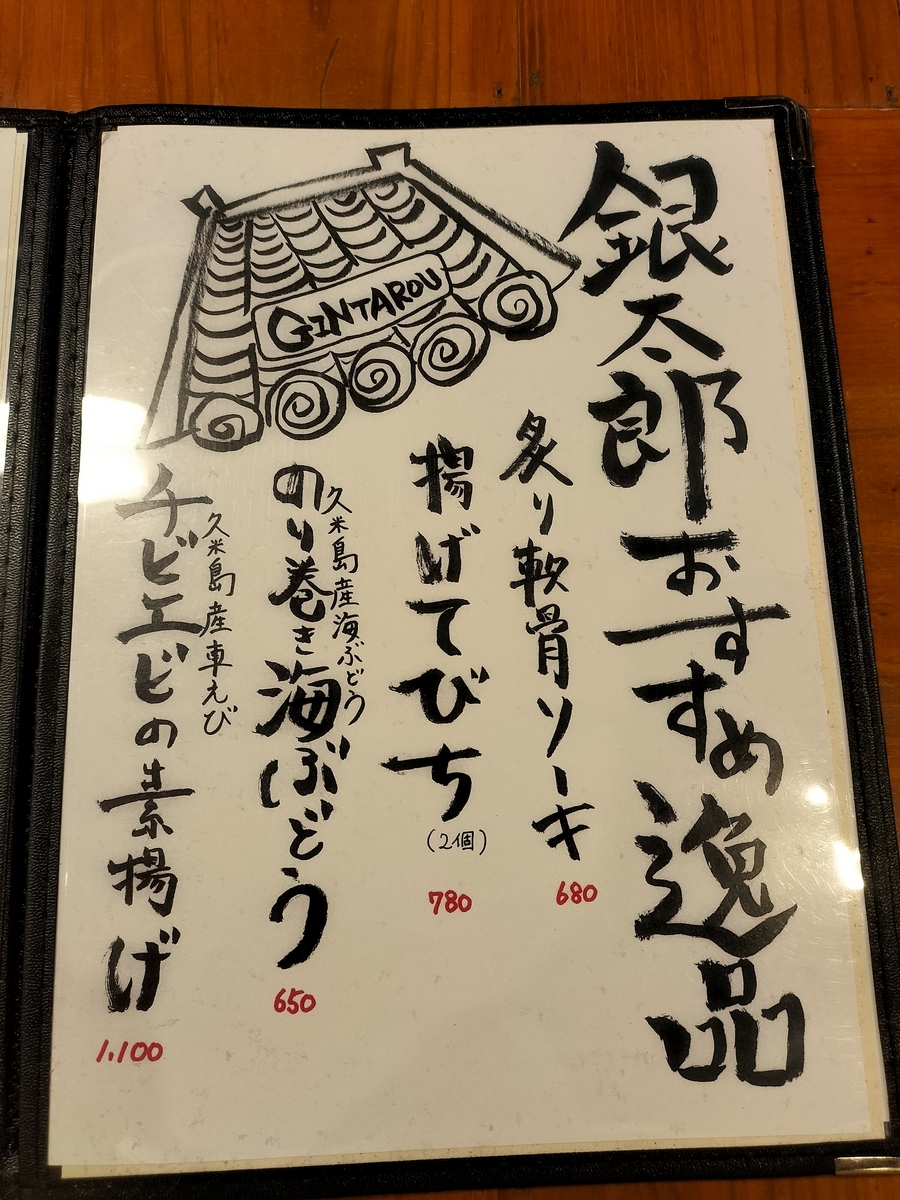 銀太郎おすすめ逸品
GINTAROU
炙り軟骨ソーキ
680
揚げてびち
(2個)
780
久米島産海ぶどう
のり巻き海ぶどう
650
久米島産車えび
チビエビの素揚げ
1.100